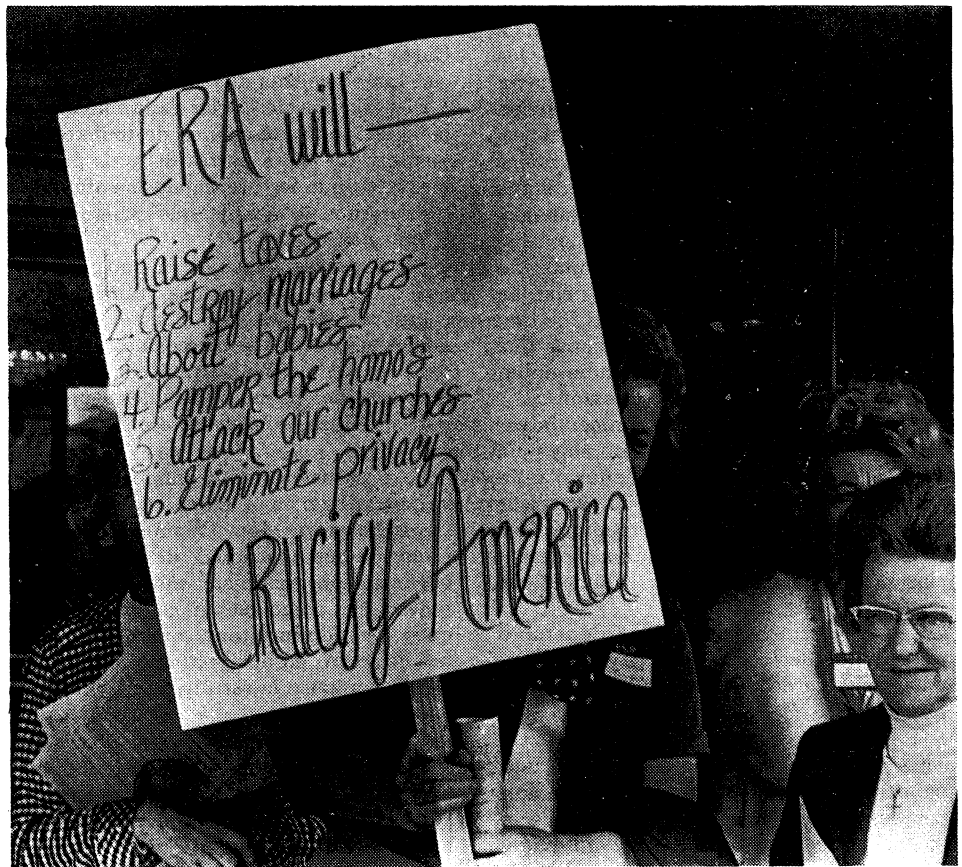 ERA will —
1. Raise taxes
2. destroy marriages
3. Abort babies
4. Pamper the homo's
5. Attack our churches
6. Eliminate privacy
CRUCIfy AmeRica